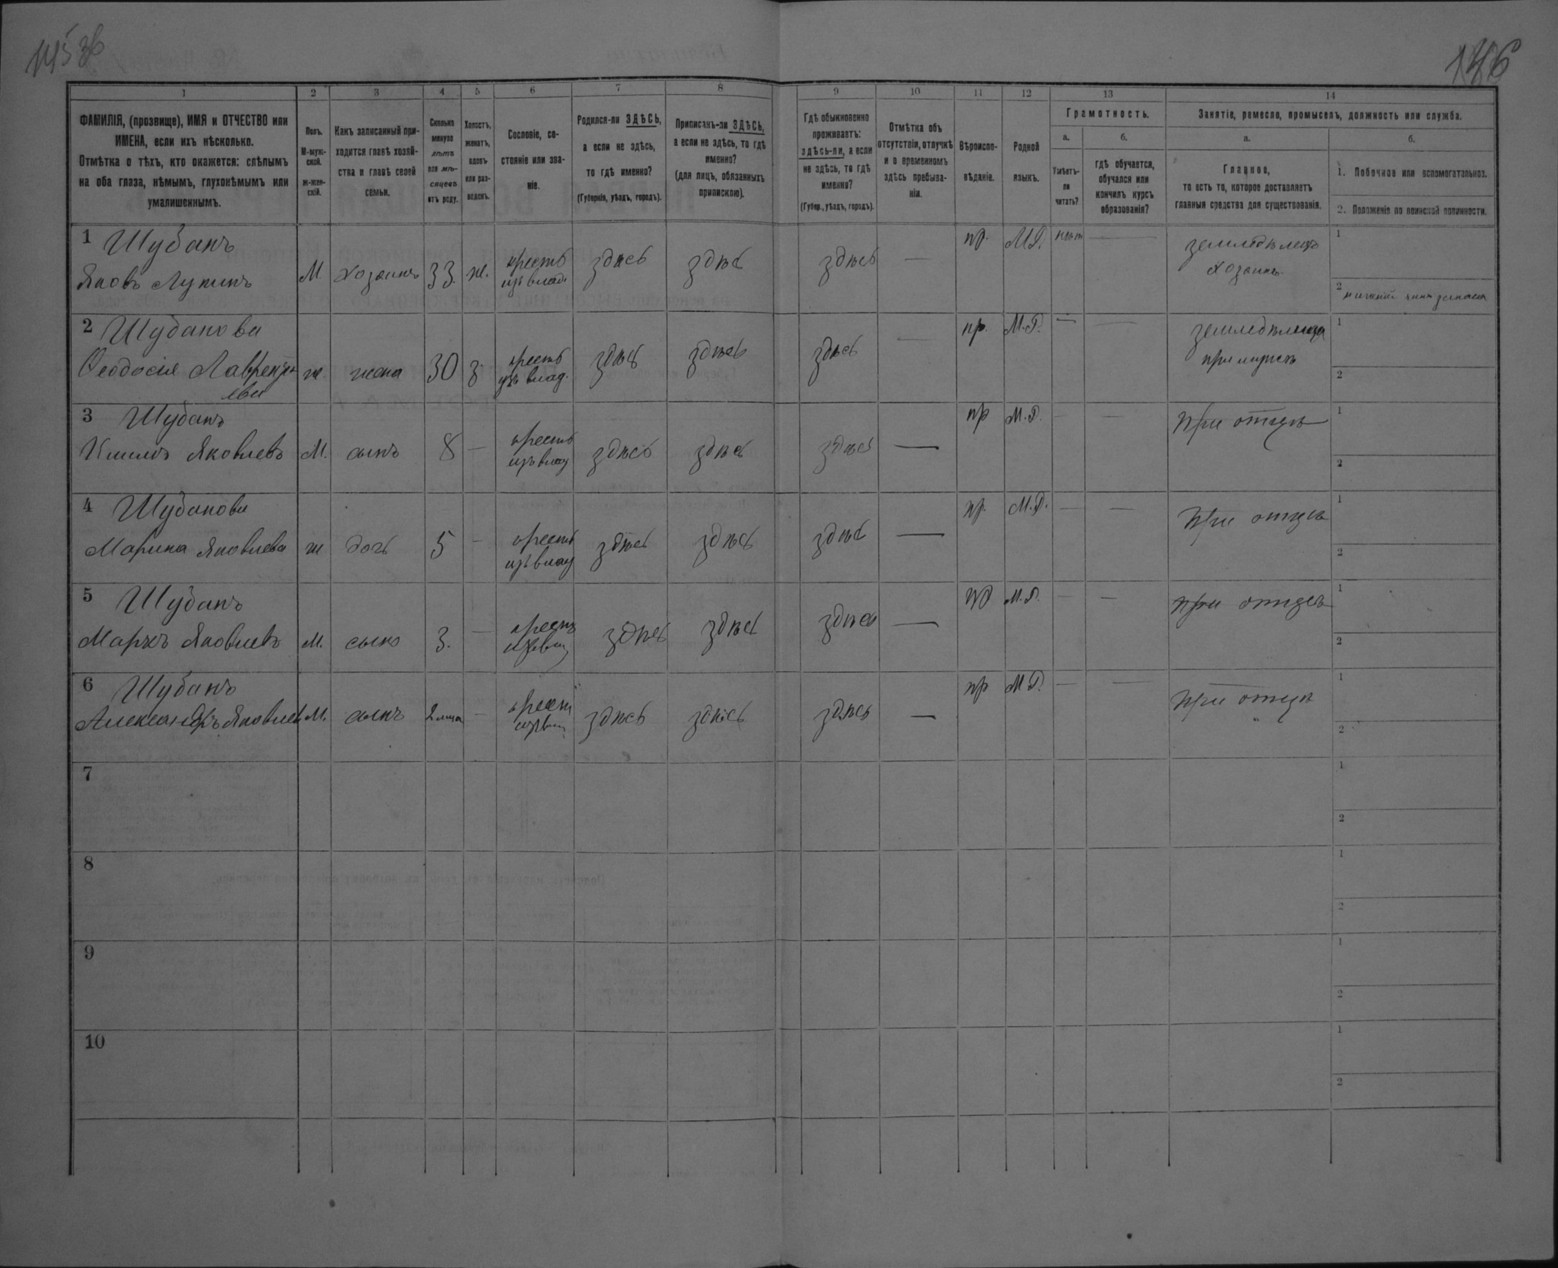 145 об
146
1 2 3 4 5 6 7 8 9 10 11 12 13 14
ФАМИЛІЯ, (прозвище), ИМЯ и ОТЧЕСТВО или
ИМЕНА, если ихъ нѣсколько.
Отмѣтка о тѣхъ, кто окажется: слѣпымъ
на оба глаза, нѣмымъ, глухонѣмымъ или
умалишеннымъ.
Полъ.
М-муж-
ской.
ж-жен-
скій.
Какъ записанный при-
ходится главѣ хозяй-
ства и главѣ своей
семьи.
Сколько
минуло
лѣтъ
или мѣ-
сяцевъ
отъ роду.
Холостъ,
женатъ,
вдовъ
или раз-
веденъ.
Сословіе, со-
стояніе или зва-
ніе.
Родился-ли ЗДѢСЬ,
а если не здѣсь,
то гдѣ именно?
(Губернія, уѣздъ, городъ).
Приписанъ-ли ЗДѢСЬ,
а если не здѣсь, то гдѣ
именно?
(для лицъ, обязанныхъ
припискою).
Гдѣ обыкновенно
проживаетъ:
здѣсь-ли, а если
не здѣсь, то гдѣ
именно?
(Губер., уѣздъ, городъ).
Отмѣтка объ
отсутствіи, отлучкѣ
и о временномъ
здѣсь пребыва-
ніи.
Вѣроиспо-
вѣданіе.
Родной
языкъ.
Грамотность.
а.
Умѣетъ-
ли
читать?
б.
гдѣ обучается,
обучался или
кончилъ курсъ
образованія?
Занятіе, ремесло, промыселъ, должность или служба.
а.
Главное,
то есть то, которое доставляетъ
главныя средства для существованія.
б.
1. Побочное или вспомогательное.
2. Положеніе по воинской повинности.
1 Шубанъ
Яковъ Лукинъ М хозяинъ 33 ж. крестъ здѣсь здѣсь здѣсь — пр. М.Р. нѣтъ — земледѣлецъ
изъ влад хозяинъ
1
2
2 Шубанова
Ѳеодосія ж жена 30 з крестъ здѣсь здѣсь здѣсь — пр. М.Р. — — земледѣлица
изъ влад. при мужѣ
1
2
3 Шубанъ
Яковлевъ М. сынъ 8 — крестъ здѣсь здѣсь здѣсь — пр М.Р. — — при отцѣ
изъ влад
1
2
4 Шубанова
Марина Яковлева ж дочь 5 — крестъ здѣсь здѣсь здѣсь — пр. М.Р. — — при отцѣ
изъ влад
1
2
5 Шубанъ
Маркъ Яковлевъ М. сынъ 3. — крестъ здѣсь здѣсь здѣсь — пр М.Р. — — при отцѣ
1
2
6 Шубанъ
Александръ Яковлев М. сынъ 2 — крест здѣсь здѣсь здѣсь — пр М.Р. — — при отцѣ
1
2
7 1
2
8 1
2
9 1
2
10 1
2